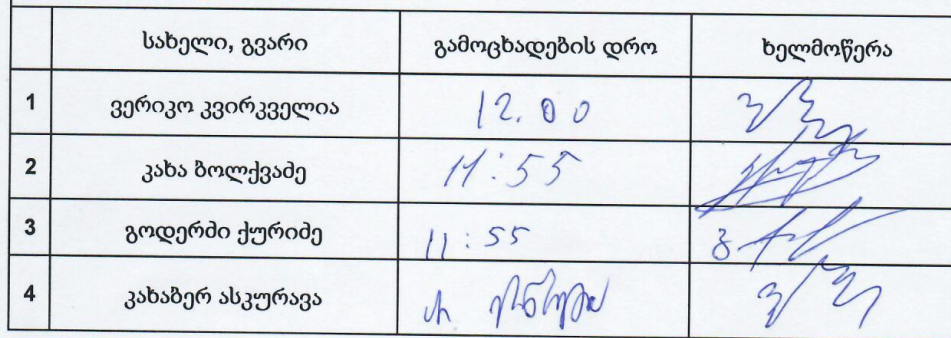 სახელი, გვარი გამოცხადების დრო ხელმოწერა
1 ვერიკო კვირკველია 12.00
2 კახა ბოლქვაძე 11:55
3 გოდერძი ქურიძე 11:55
4 კახაბერ ასკურავა არ ესწრება